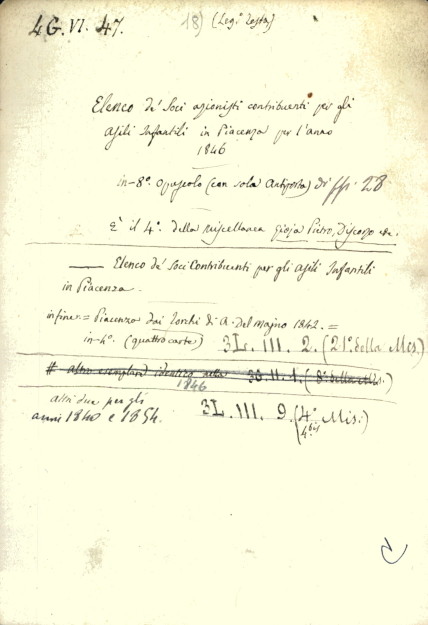 4 G. VI. 47. 18) (Leg.
Elenco de' Soci azionisti contribuenti per gli
Asili Infantili in Piacenza per l'anno
1846
in-8º. Opuscolo (con sola Antiporta) di pp. 28
È il 4º. della Miscellanea Gioja Pietro, Discorso ec.
— Elenco de' Soci Contribuenti per gli Asili Infantili
in Piacenza.
infine = Piacenza dai Torchi di A. Del Majno 1842. =
in-4º. (quattro carte) 3L. III. 2. (21º della Mis.)
# altro esemplare identico nella 3G. II. 1. (8º della Mis.)
1846
altri due per gli
anni 1840 e 1854. 3L. III. 9. (4º Mis.)
4º bis